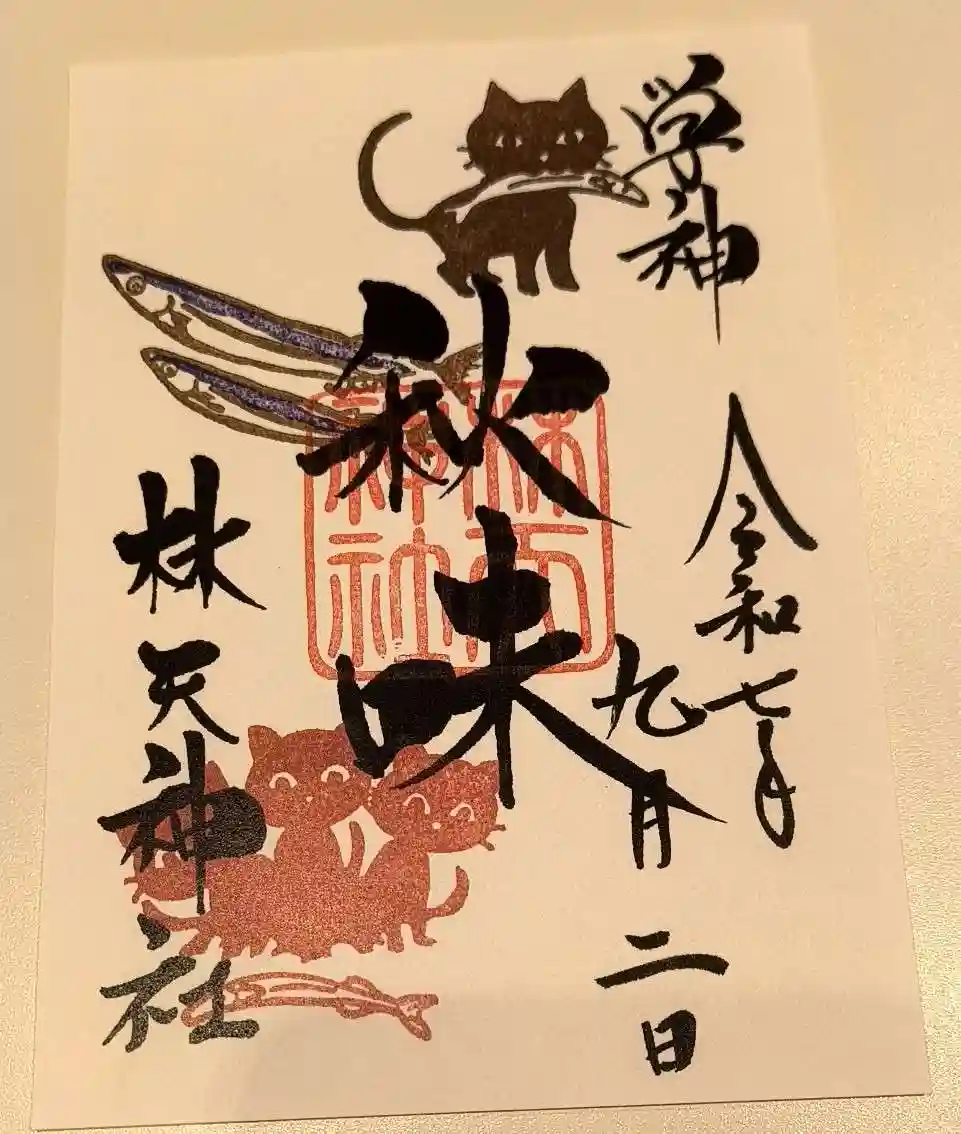 学神
令和七年
九月二日
秋味
林天
神社
林天神社